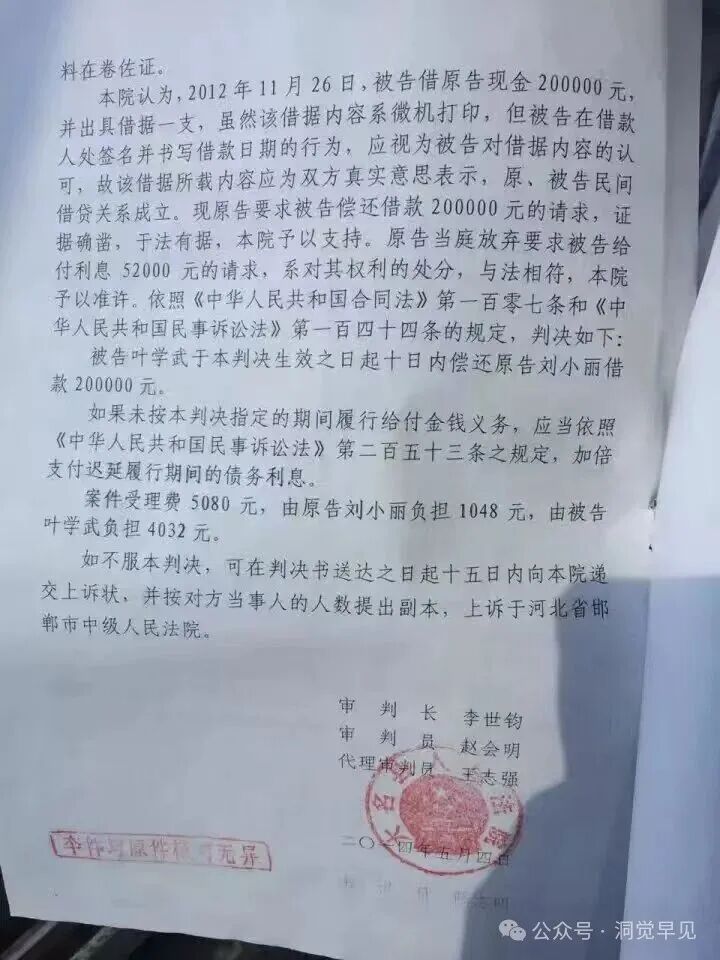 料在卷佐证。
本院认为,2012年11月26日,被告借原告现金200000元,
并出具借据一支,虽然该借据内容系微机打印,但被告在借款
人处签名并书写借款日期的行为,应视为被告对借据内容的认
可,故该借据所载内容应为双方真实意思表示,原、被告民间
借贷关系成立。现原告要求被告偿还借款200000元的请求,证
据确凿,于法有据,本院予以支持。原告当庭放弃要求被告给
付利息52000元的请求,系对其权利的处分,与法相符,本院
予以准许。依照《中华人民共和国合同法》第一百零七条和《中
华人民共和国民事诉讼法》第一百四十四条的规定,判决如下:
被告叶学武于本判决生效之日起十日内偿还原告刘小丽借
款200000元。
如果未按本判决指定的期间履行给付金钱义务,应当依照
《中华人民共和国民事诉讼法》第二百五十三条之规定,加倍
支付迟延履行期间的债务利息。
案件受理费5080元,由原告刘小丽负担1048元,由被告
叶学武负担4032元。
如不服本判决,可在判决书送达之日起十五日内向本院递
交上诉状,并按对方当事人的人数提出副本,上诉于河北省邯
郸市中级人民法院。
审 判 长 李世钧
审 判 员 赵会明
代理审判员 王志强
大名县
法院
二〇一四年五月四日
本件与原件核对无异
公众号·洞觉早见